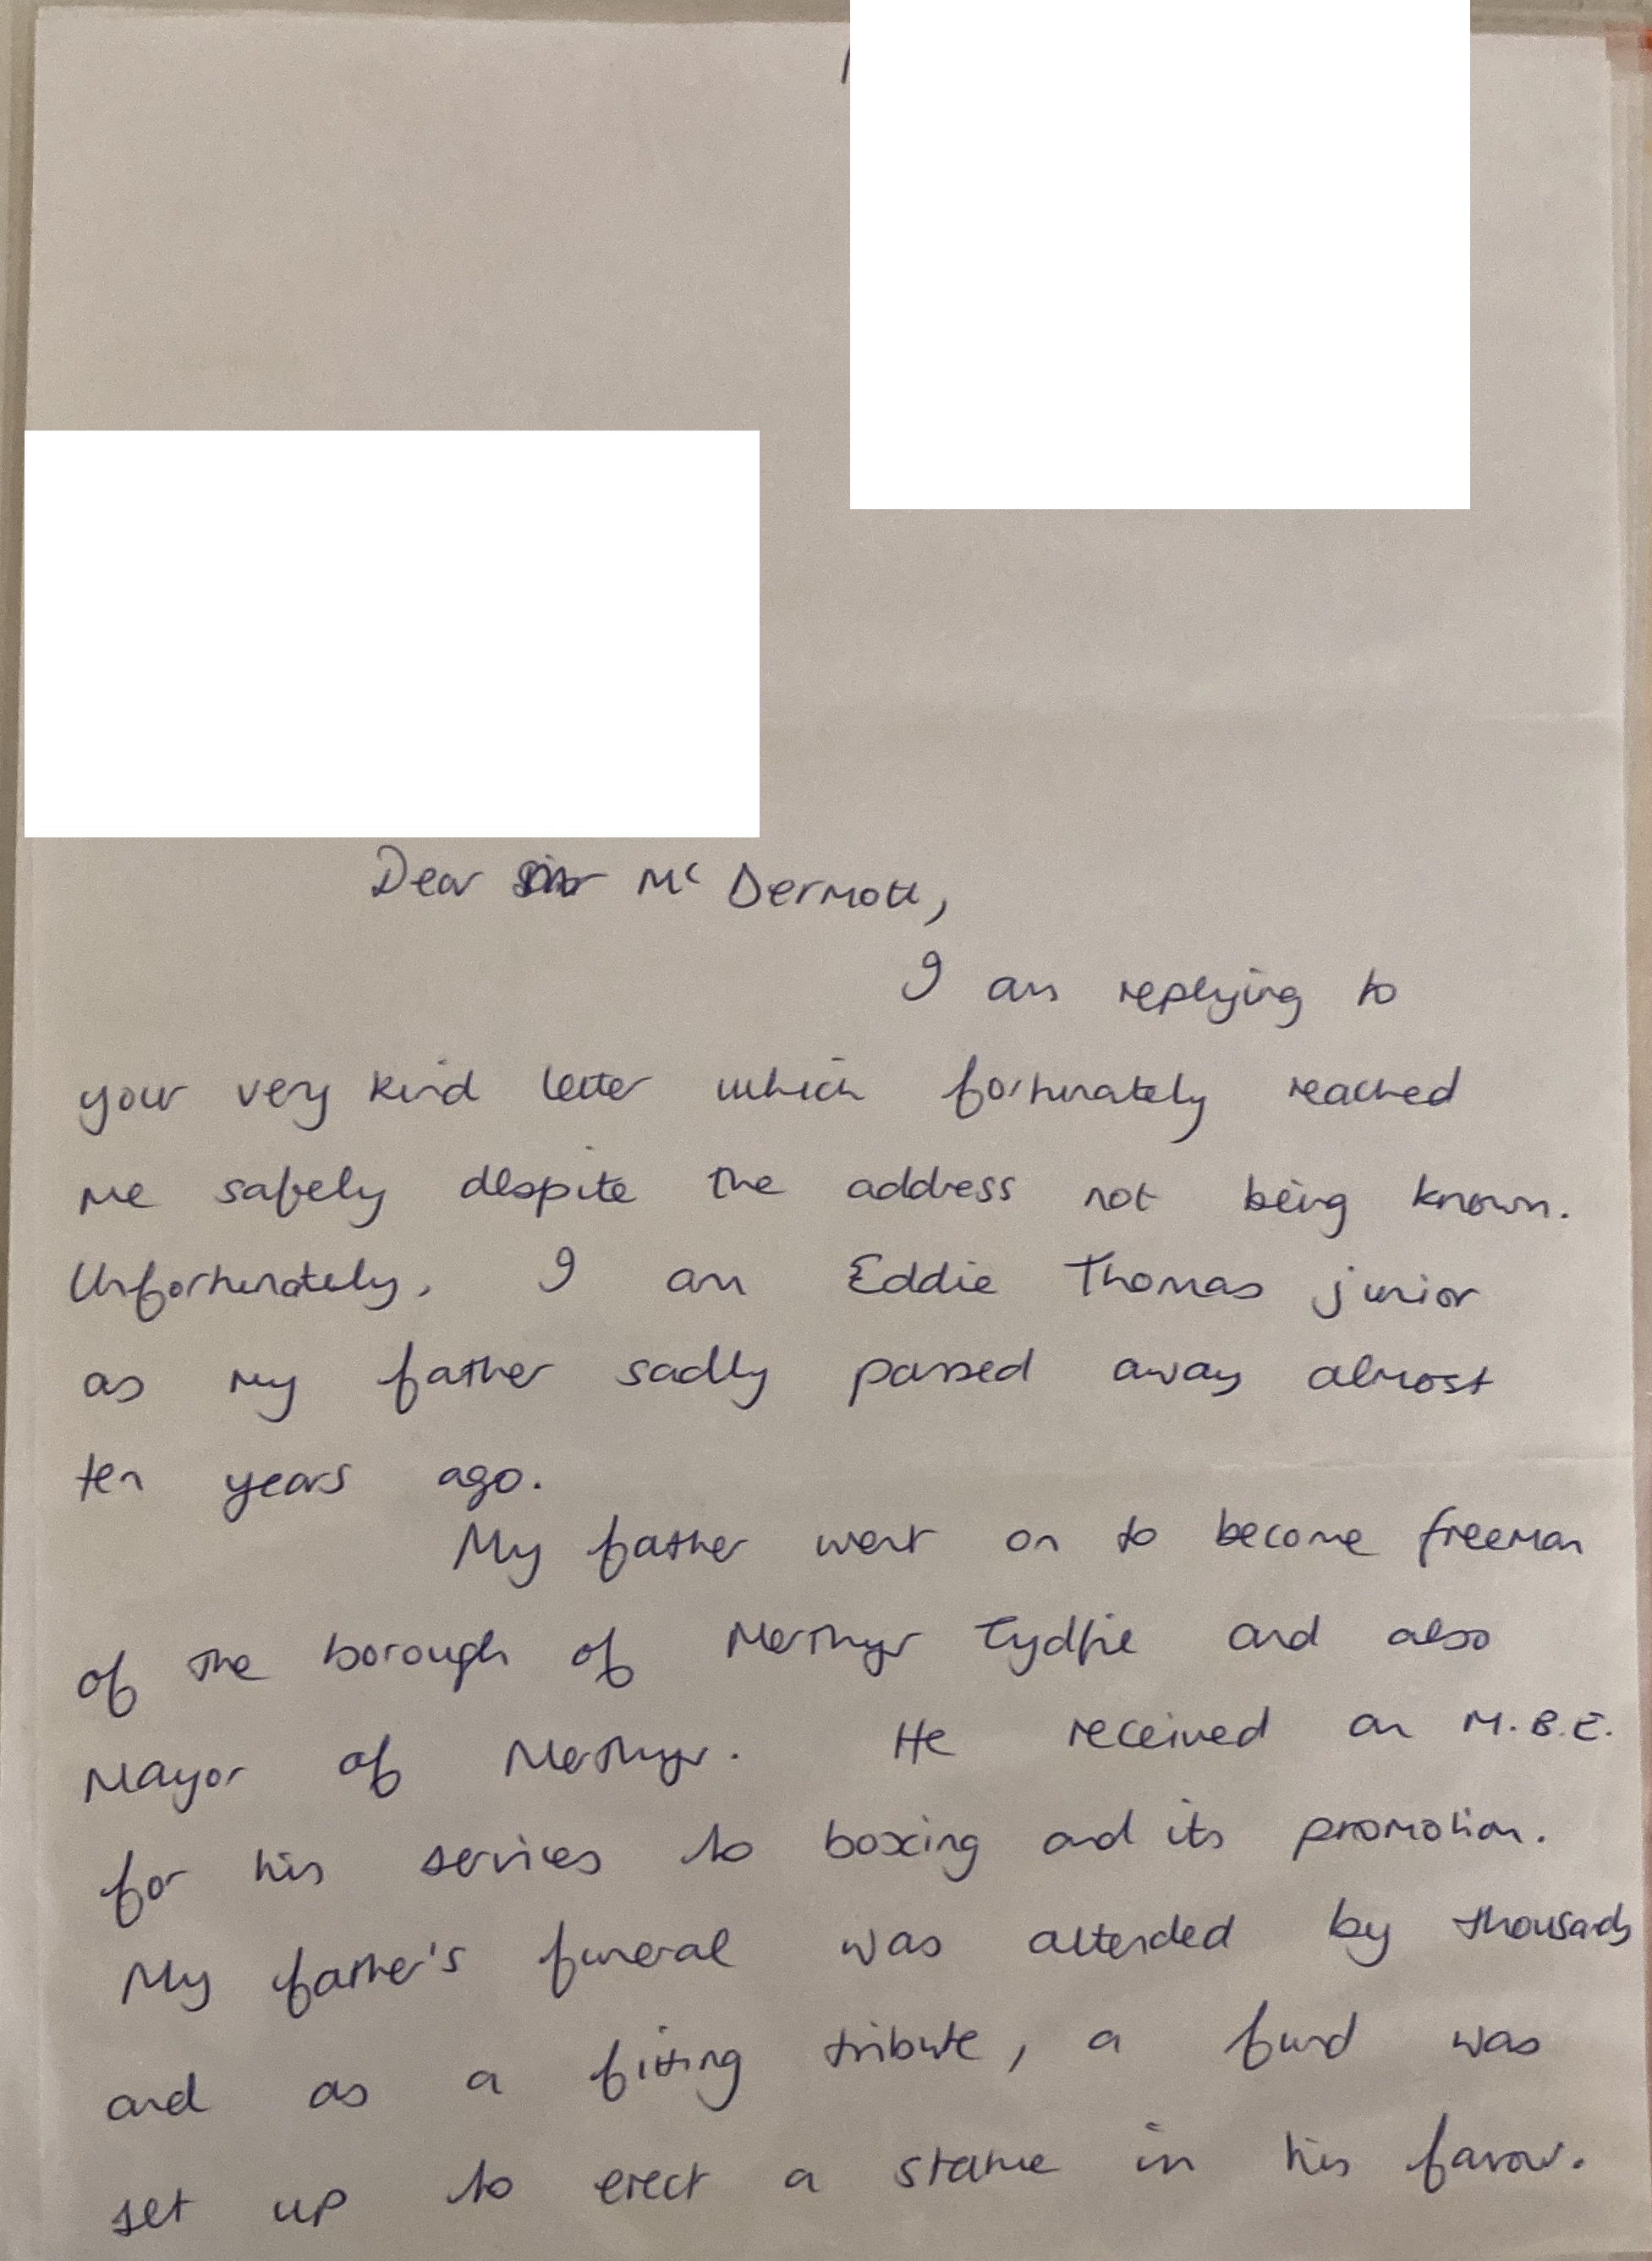 Dear Mc Dermott,
I am replying to
your very kind letter which fortunately reached
me safely despite the address not being known.
Unfortunately, I am Eddie Thomas junior
as my father sadly passed away almost
ten years ago.
My father went on to become freeman
of the borough of Merthyr Tydfil and also
Mayor of Merthyr. He received an M.B.E.
for his services to boxing and its promotion.
My father's funeral was attended by thousands
and as a fitting tribute, a fund was
set up to erect a statue in his favour.